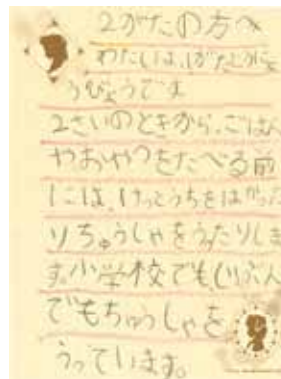 2がたの方へ
わたしは、1がたとうに
ょうびょうです
2さいのときから、ごはん
やおやつをたべる前
には、けっとうちをはかった
りちゅうしゃをうったりしま
す。小学校でもじぶん
でもちゅうしゃを
うっています。